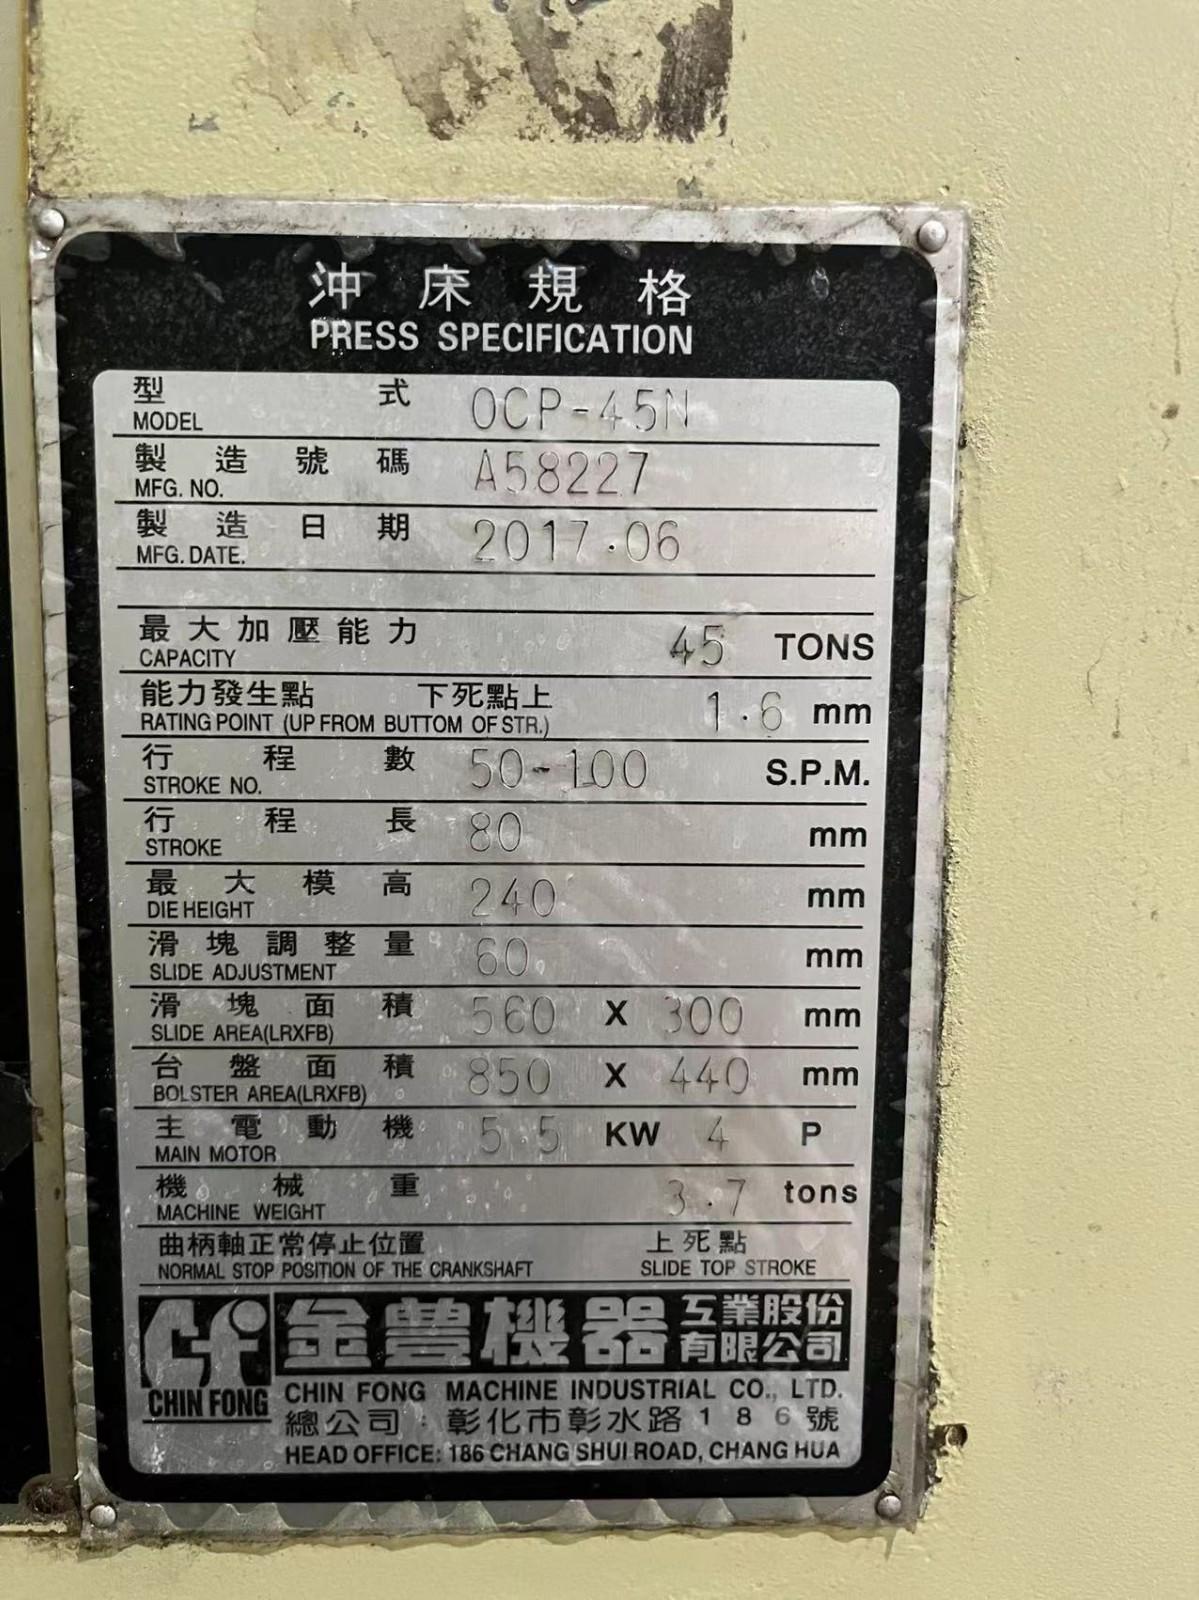 沖床規格
PRESS SPECIFICATION
型式 OCP-45N
MODEL
製造號碼 A58227
MFG. NO.
製造日期 2017.06
MFG. DATE.
最大加壓能力 45 TONS
CAPACITY
能力發生點 下死點上 1.6 mm
RATING POINT (UP FROM BUTTOM OF STR.)
行程數 50-100 S.P.M.
STROKE NO.
行程長 80 mm
STROKE
最大模高 240 mm
DIE HEIGHT
滑塊調整量 60 mm
SLIDE ADJUSTMENT
滑塊面積 560 X 300 mm
SLIDE AREA(LRXFB)
台盤面積 850 X 440 mm
BOLSTER AREA(LRXFB)
主電動機 5.5 KW 4 P
MAIN MOTOR
機械重 3.7 tons
MACHINE WEIGHT
曲柄軸正常停止位置 上死點
NORMAL STOP POSITION OF THE CRANKSHAFT SLIDE TOP STROKE
金豊機器 互業股份有限公司
CHIN FONG CHIN FONG MACHINE INDUSTRIAL CO., LTD.
總公司：彰化市彰水路186號
HEAD OFFICE: 186 CHANG SHUI ROAD, CHANG HUA